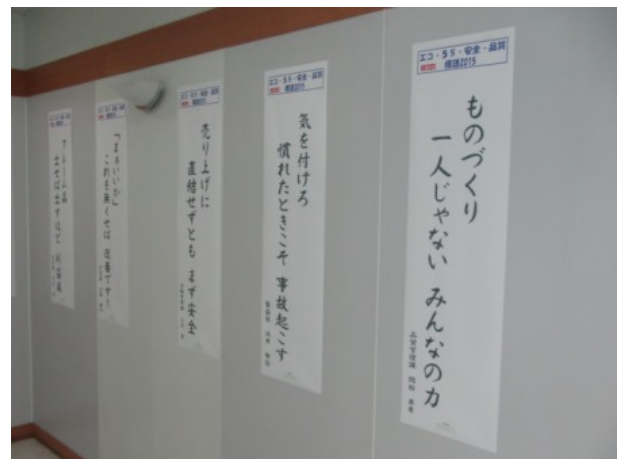 エコ・5S・安全・品質
標語2015
ものづくり
一人じゃない みんなの力
品質管理課
エコ・5S・安全・品質
標語2015
気を付けろ
慣れたときこそ 事故起こす
エコ・5S・安全・品質
標語2015
売り上げに
直結せずとも まず安全
「まぁいいか」
これを無くせば 改善です!
出せば出すほど